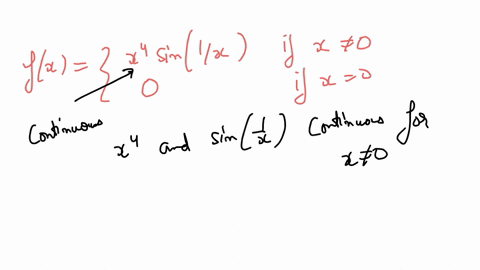 f(x) = { x⁴ sin(1/x) if x ≠ 0
0 if x = 0
Continuous
x⁴ and sin(1/x) Continuous for
x ≠ 0